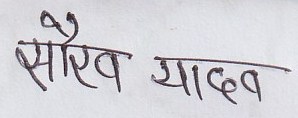 सौरव यादव